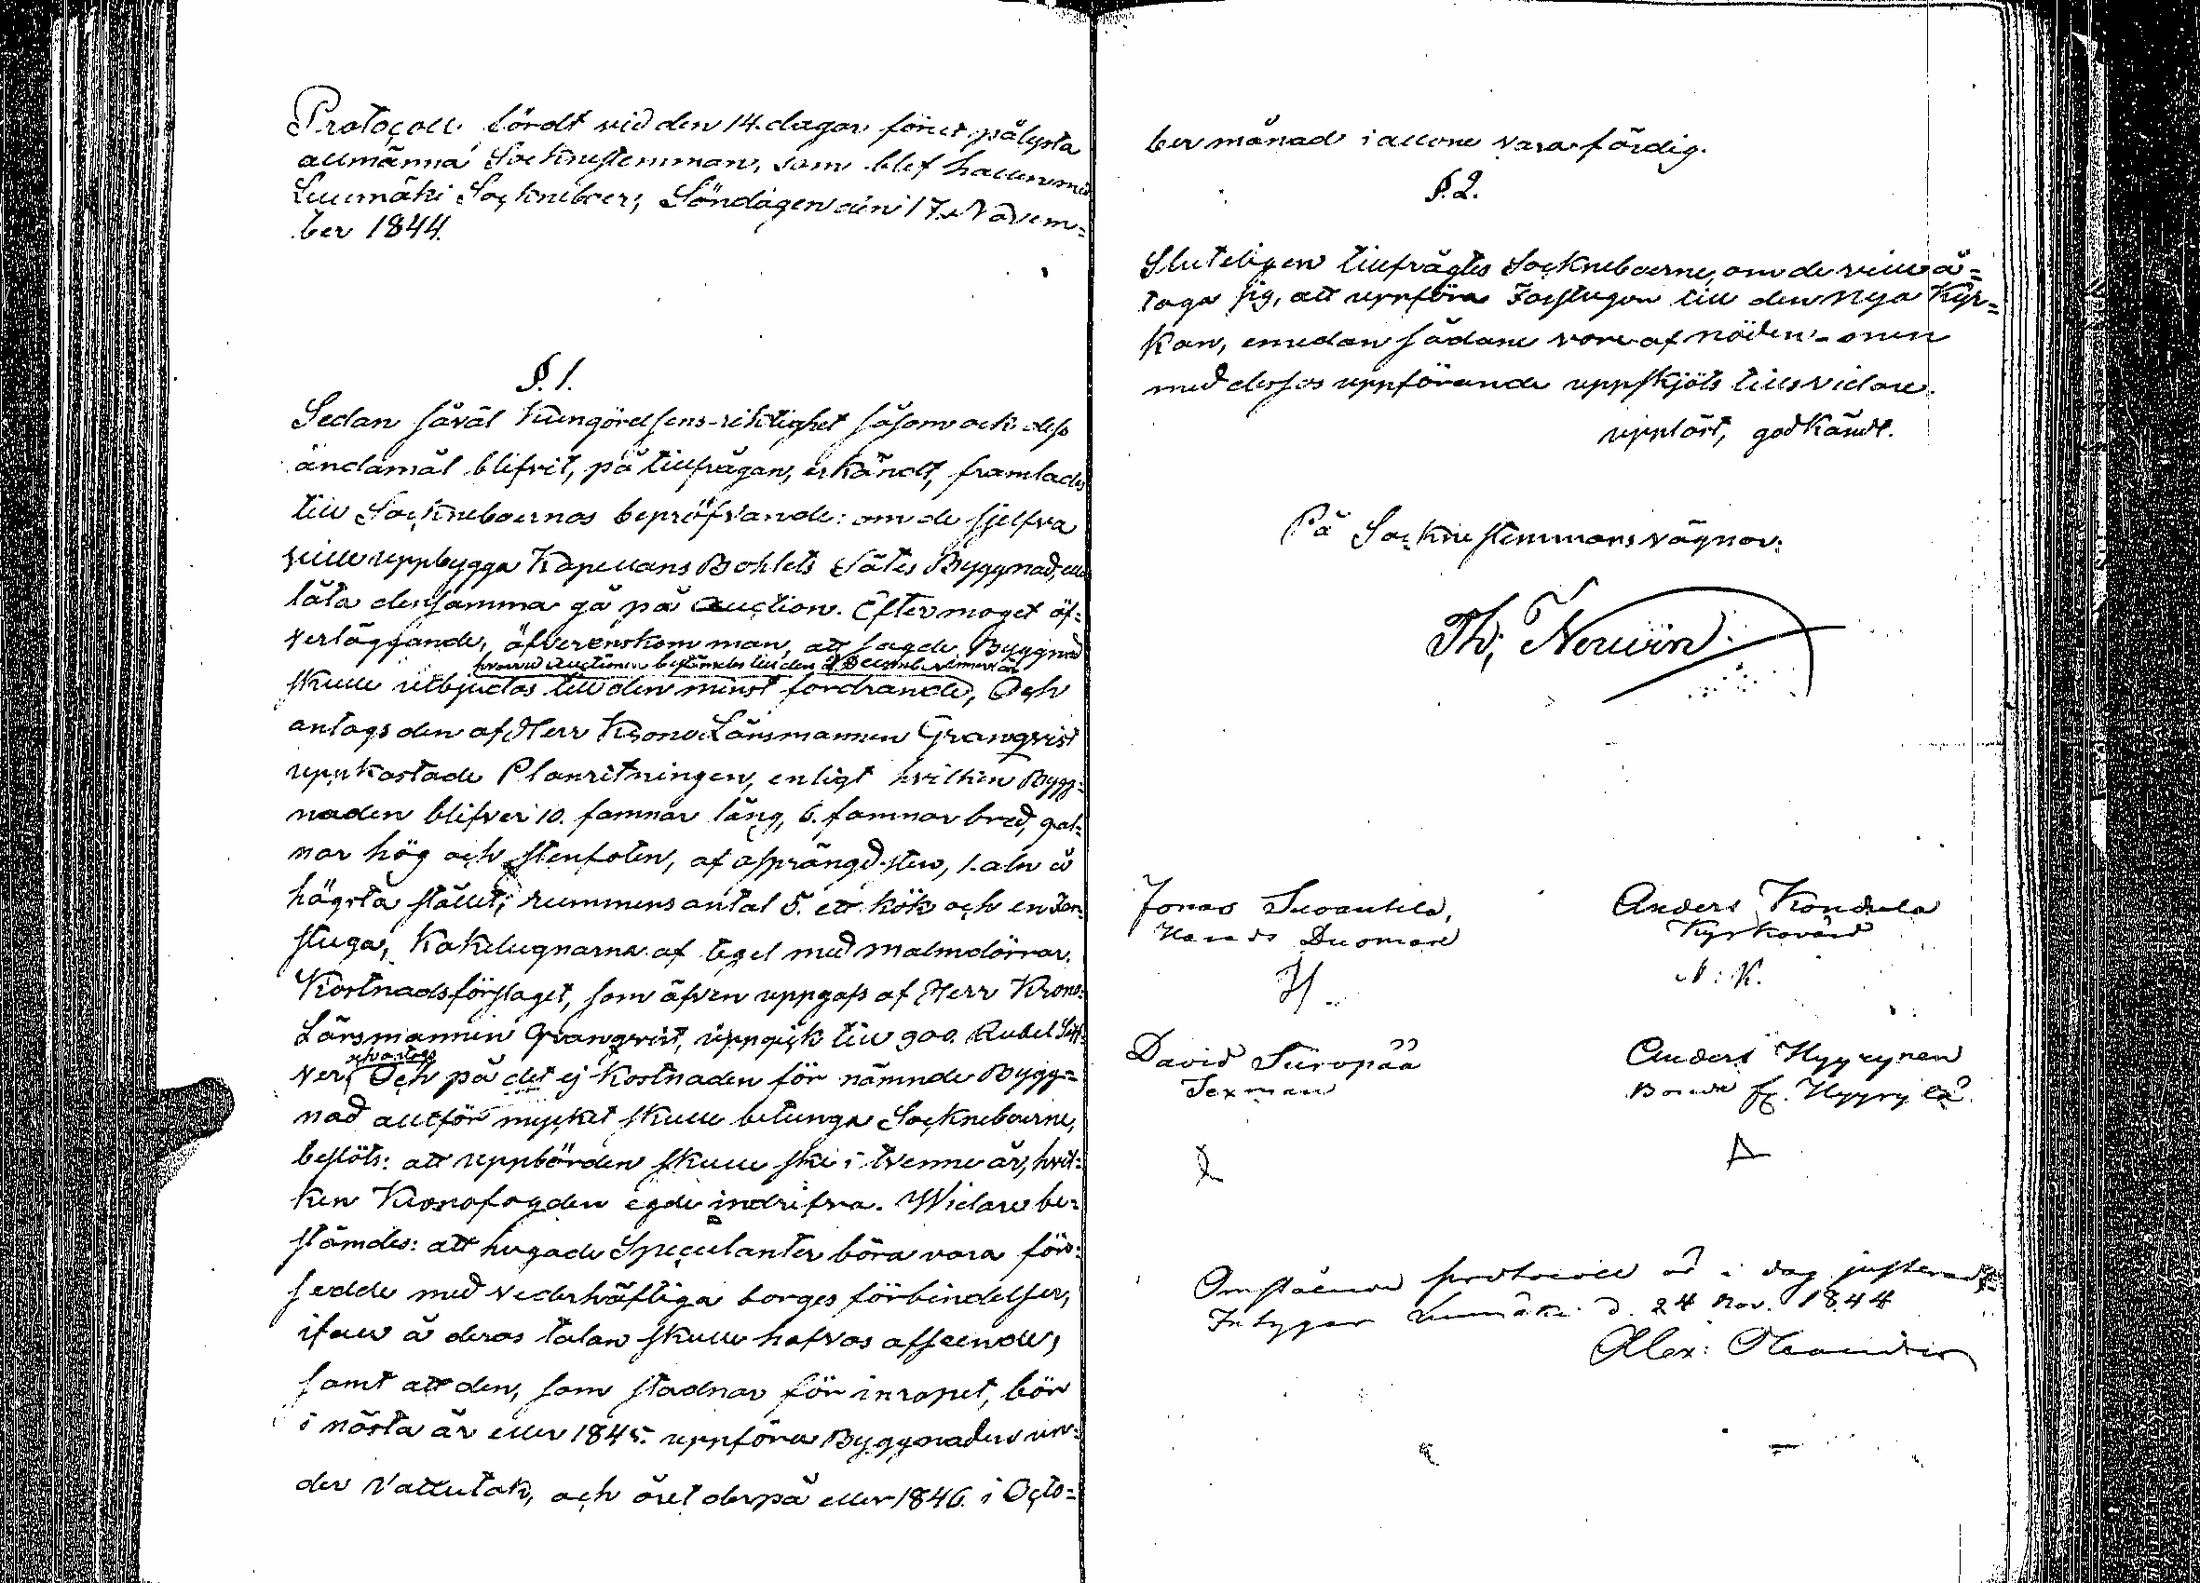 Protocoll, fördt vid den 14. dagar förut pålysta
allmänna Socknestemman, som blef hållen med
Luumäki Sockneboer, Söndagen den 17. Novem=
ber 1844.
§. 1.
Sedan såväl Kungörelsens riktighet såsom ock dess
ändamål blifvit, på tillfrågan, erkändt, framlades
till Sockneboernas bepröfvande: om de sjelfva
ville uppbygga Kapellans Bohlets Sätes Byggnad, eller
låta densamma gå på Auction. Efter moget öf=
verläggande, öfverenskom man, att sagde Byggnad
hvarvid Auctionen bestämdes till den
skulle utbjudas till den minst fordrande, Och
antogs den af Herr Krono Länsmannen Granqvist
uppkastade Planritningen, enligt hvilken Bygg=
naden blifver 10. famnar lång, 6. famnar bred,
nar hög och stenfoten, af sprängd sten, 1. aln å
högsta stället, rummens antal 5. ett kök och en För
stuga, Kakelugnarna af tegel med malmdörrar.
Kostnadsförslaget, som äfven uppgafs af Herr Krono
Länsmannen Granqvist, uppgick till 900. Rubel Silf=
och antogs
ver, Och på det ej Kostnaden för nämnde Bygg=
nad alltför mycket skulle betunga Sockneboerne,
beslöts: att uppbörden skulle ske i tvenne år, hvil=
ken Kronofogden egde indrifva. Widare be=
stämdes: att hugade Speculanter böra vara för=
sedde med vederhäftiga borges förbindelser,
ifall å deras talan skulle hafvas afseende,
samt att den, som stadnar för inropet, bör
i nästa år eller 1845. uppföra Byggnaden un=
der Vattutak, och året derpå eller 1846. i Octo=
ber månad i allone vara färdig.
§. 2.
Sluteligen tillfrågtes Sockneboerne, om de ville å=
taga sig, att uppföra Farstugor till den nya Kyr=
kan, emedan sådane vore af nöden - men
med dessas uppförande uppskjöts tills vidare.
uppläst, godkändt.
På Socknestemmans vägnar:
Th; Neuvin
Jonas Suoanttila,
Härads Duomare
Anders Kondula
Kyrkovärd
A: K.
David Süropää
Sexman
Anders Hyyrynen
Bonde fr. Hyyrylä
Omstående protocoll är i dag justeradt
Intygar Luumäki d. 24 Nov. 1844
Alex: